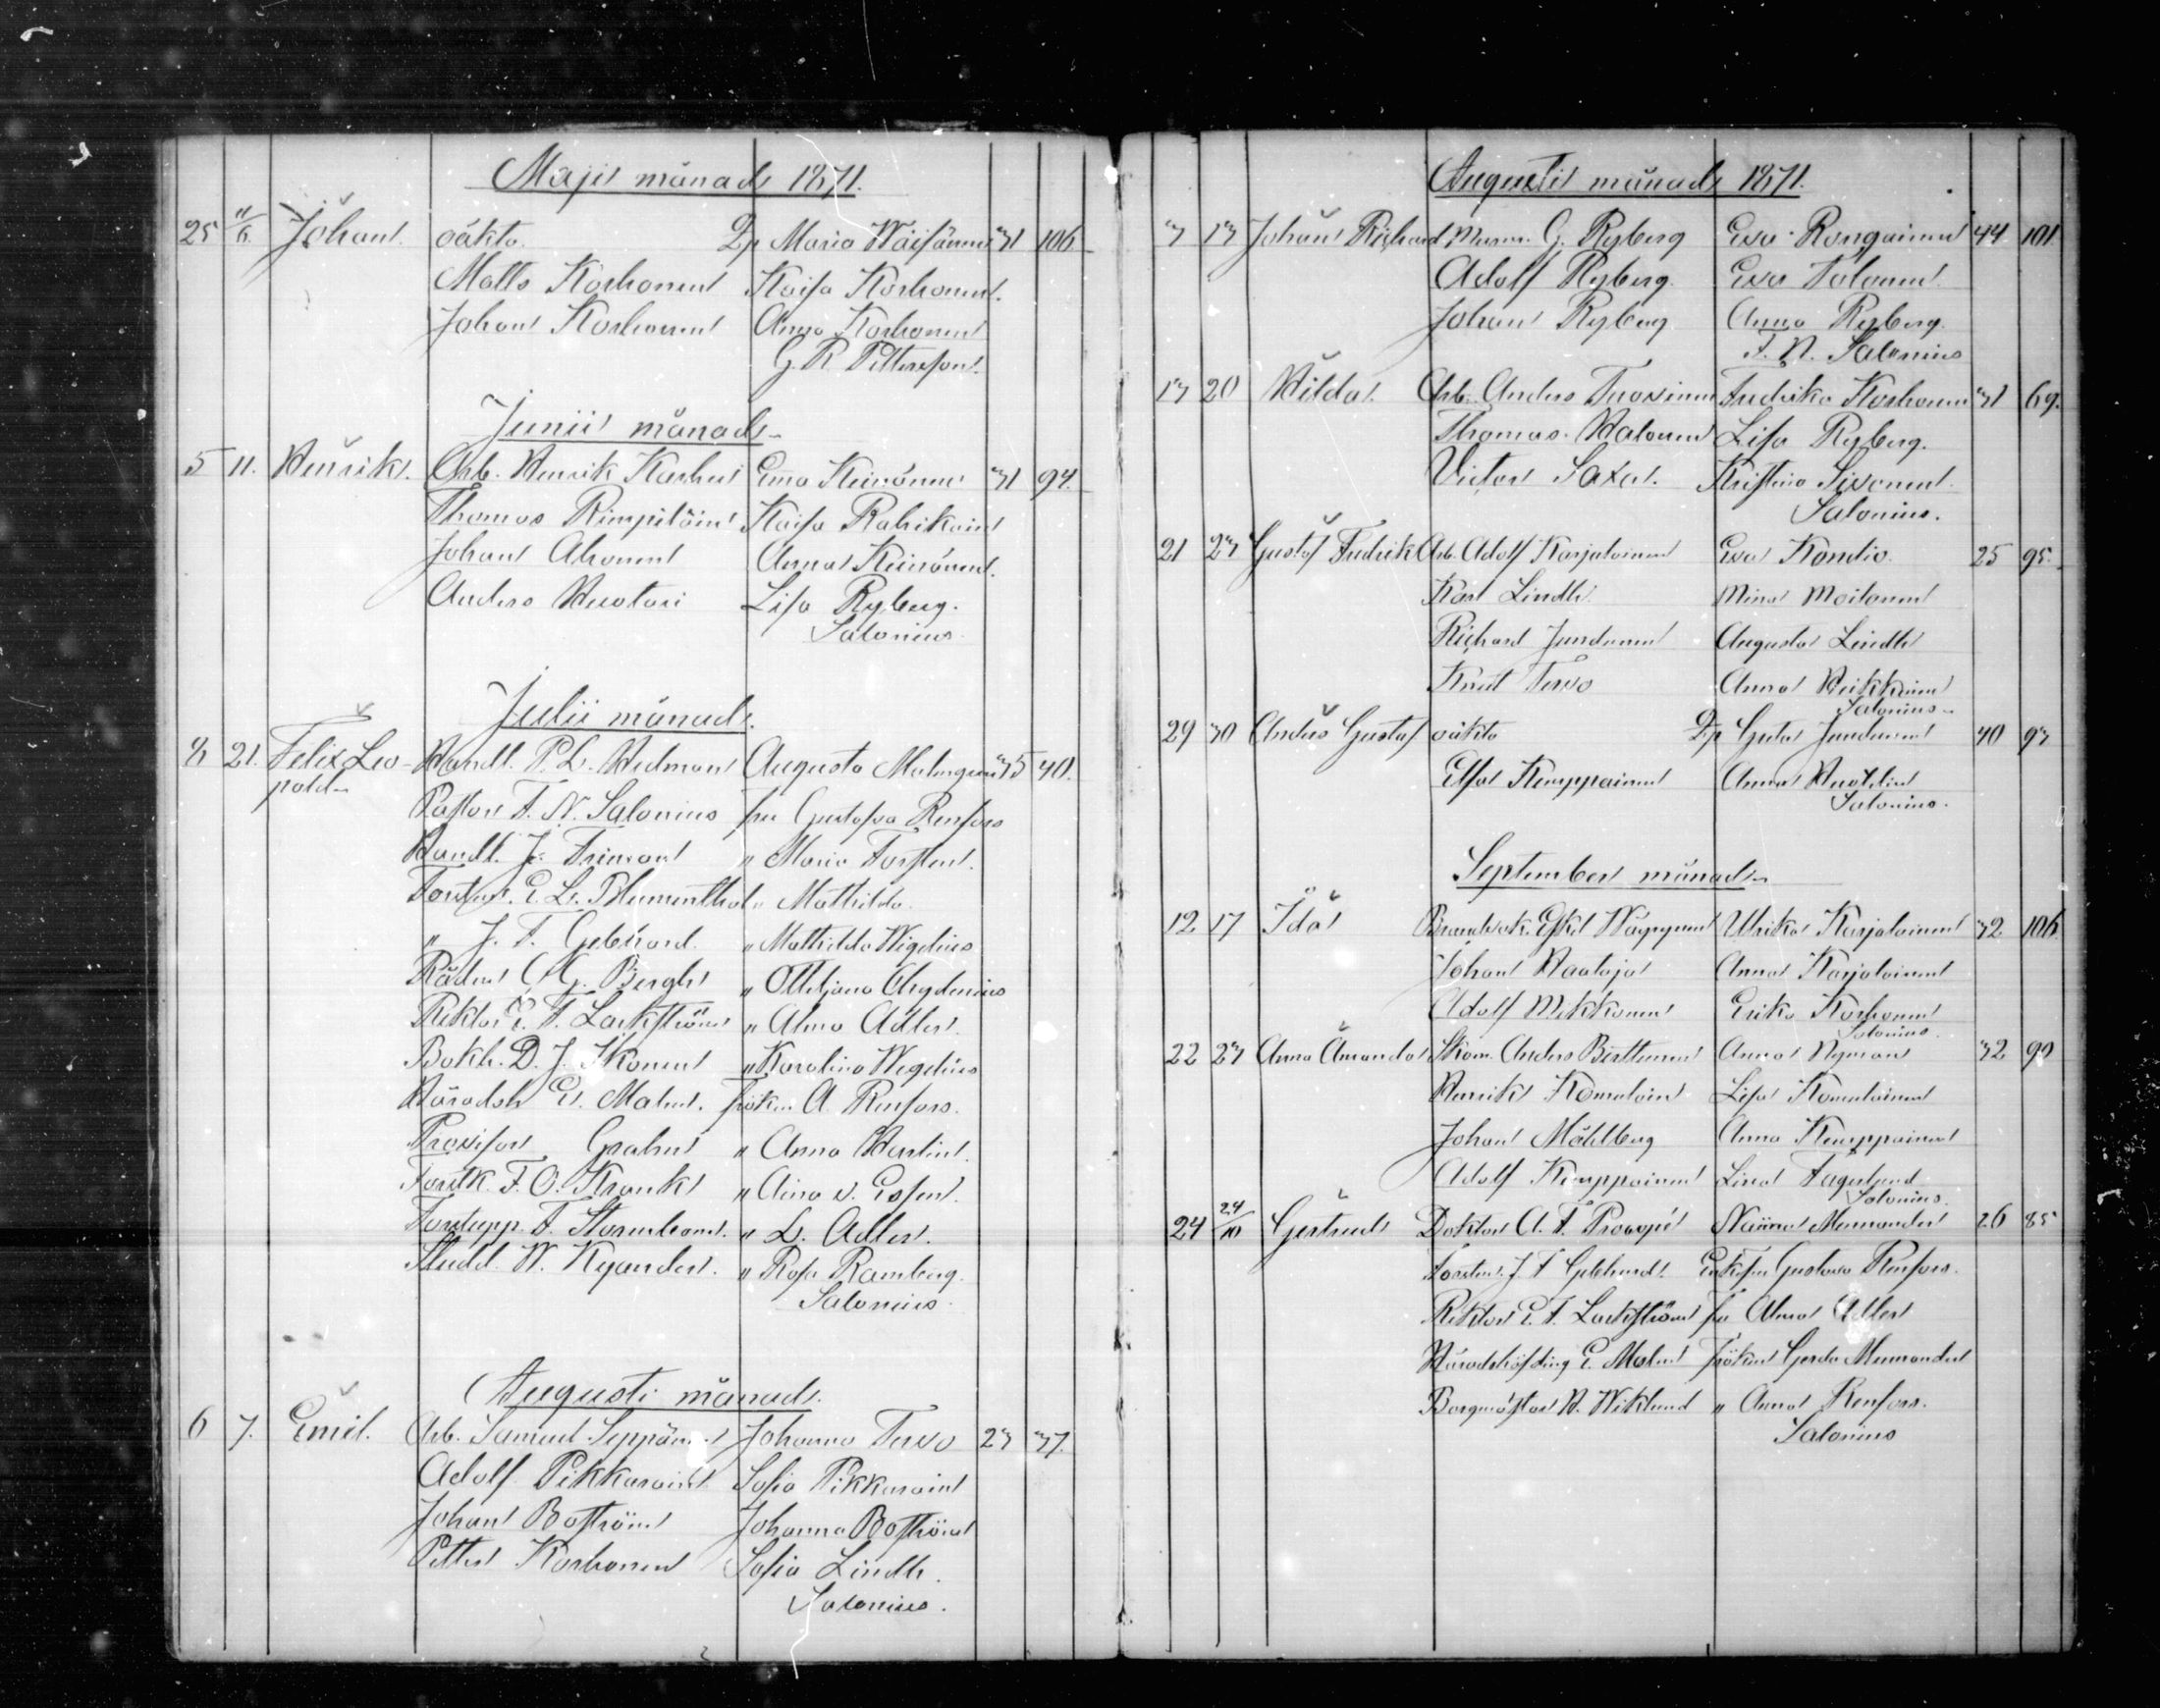 Maji månad 1871.
25 11/6. Johan. oäkta. Qp Maria Wäisänen 31 106
Matts Korhonen Kaisa Korhonen.
Johan Korhonen Anna Korhonen
G. R. Pettersson.
Junii månad
5 11. Henrik. Arb. Henrik Karhu Ema Keinänen 31 94.
Thomas Rimpiläin Kaisa Rahikain
Johan Ahonen Anna Keinänen.
Anders Huotari Lisa Ryberg.
Salonius
Julii månad.
8 21. Felix Leo- Handl. P. L. Hedman Augusta Malmgren 35 40.
pold Pastor F. N. Salonius fru Gustafva Renfors
Handl. J. Friman " Maria Forsten.
Forstm. E. L. Blumenthal " Mathilda
" J. F. Gebhard. " Mathilda Wigelius
Rådm G. Bergh " Ottiljana Argdenius
Rektor E. F. Lackström " Alma Adler.
Bokh. D. J. Ikonen " Karolina Wegelius
Häradsh E. Malm. fröken A. Renfors.
Provisor Grahn " Anna Herlin.
Forstk. F. O. Krank " Aina v. Essen.
Forstupp. F. Stormbom. " L. Adler.
Studd. W. Kyander. " Rosa Ramberg.
Salonius
Augusti månad.
6 7. Emil. Arb. Samuel Seppänen Johanna Tervo 23 37.
Adolf Pikkarain Sofia Pikkarain
Johan Boström Johanna Boström
Petter Korhonen Sofia Lindh.
Salonius.
Augusti månad 1871.
3 13 Johan Richard Murm. G. Ryberg Eva Rongainen 44 101
Adolf Ryberg. Eva Tolonen.
Johan Ryberg Anna Ryberg.
F. N. Salonius
13 20 Hilda. Arb. Anders Tuovinen Fredrika Korhonen 31 69.
Thomas Halonen Lisa Ryberg.
Victor Saxen. Kristina Sivonen.
Salonius.
21 23 Gustaf Fredrik Arb. Adolf Karjalainen Eva Kondio 25 95.
Karl Lindh. Mina Moilanen
Richard Jundunen Augusta Lindh
Knut Tervo Anna Heikkinen
Salonius
29 30 Anders Gustaf oäkta Qp Greta Jundunen 40 93
Elsa Kemppainen Anna
Salonius.
September månad
12 17 Ida Brandvak. Eskel Wäyrynen Ulrika Karjalainen 32 106
Johan Haataja Anna Karjalainen
Adolf Mikkonen Erika Korhonen
Salonius.
22 23 Anna Amanda Skom. Anders Berttunen Anna Nyman 32 90
Henrik Komulain Lisa Komulainen
Johan Måhlberg Anna Kemppainen
Adolf Kemppainen Lina Fagerlund
Salonius.
24 24/10 Gertrud Doktor A. F. Procopé Naima Memander 26 85
Forstm. J. F. Gebhard. Enkefru Gustava Renfors.
Rektor E. F. Lackström fru Alma Adler
Häradshöfding E. Malm Fröken Gerda Memander
Borgmästar N. Wiklund " Anna Renfors.
Salonius